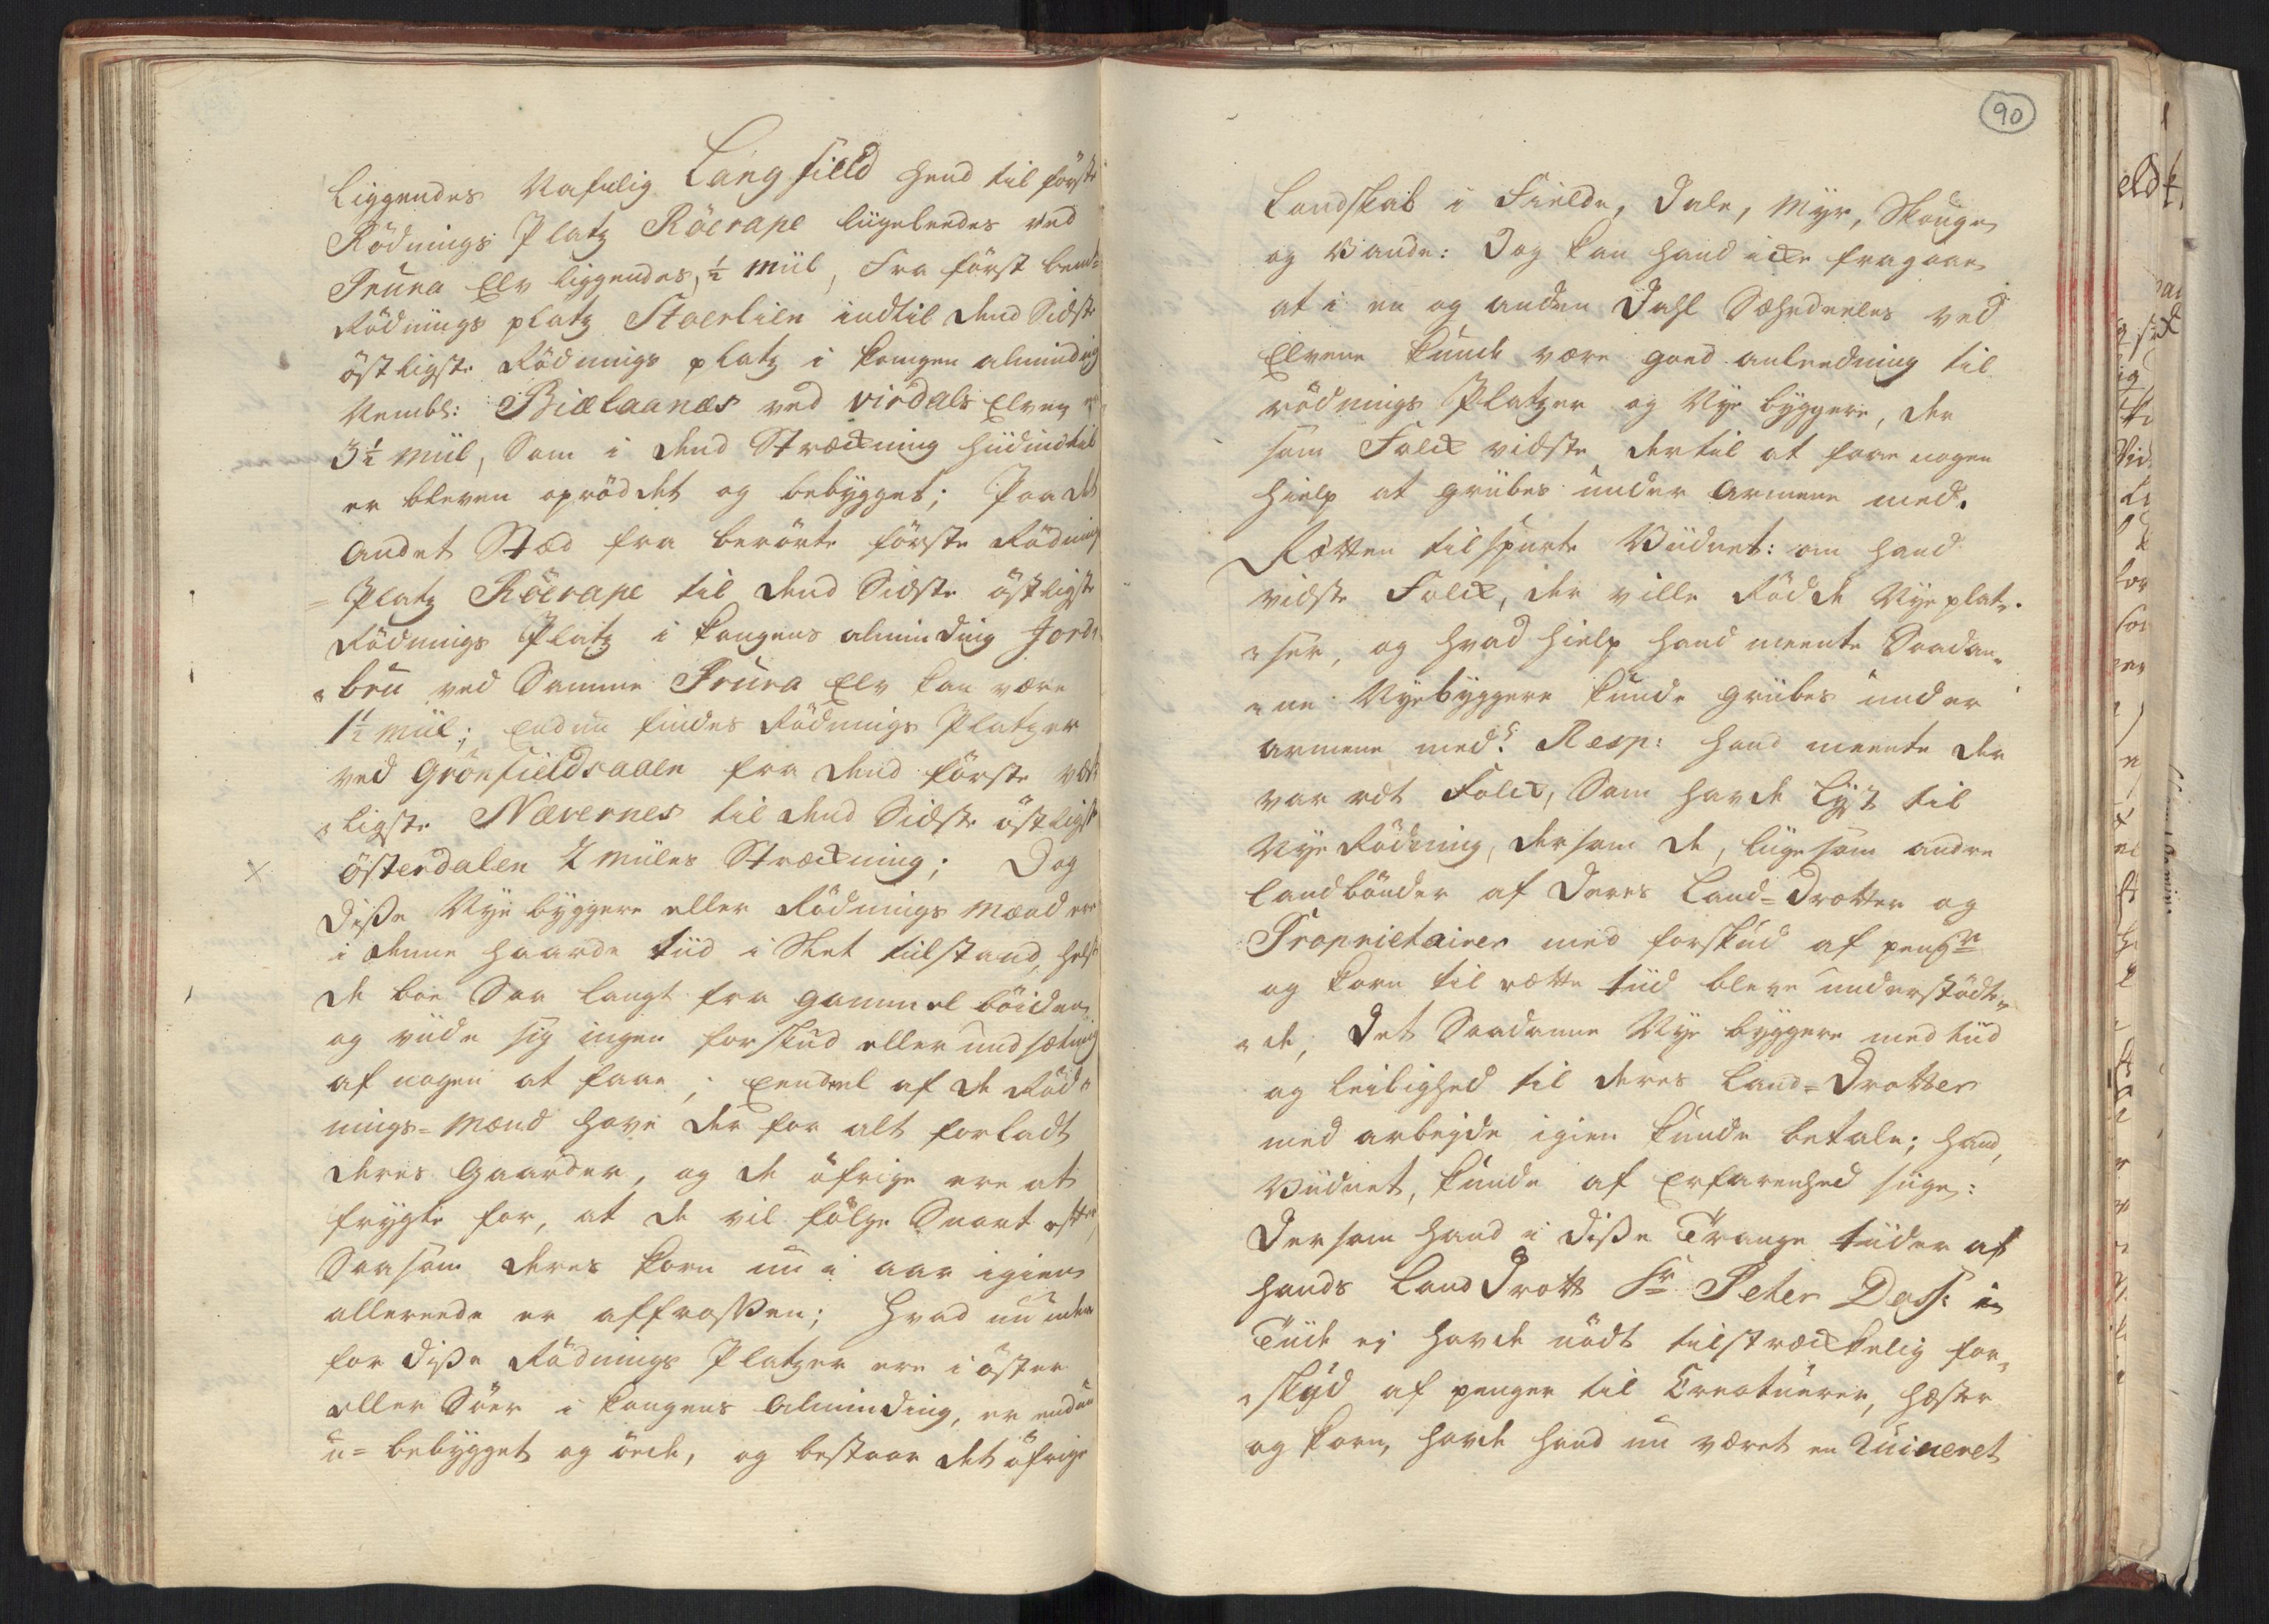 Liggendes Nafnlig Langfield hend til förste
Rödnings Platz Röerape liigeleedes ved
Prura Elv liggendes, ½ Miil, Fra först bem=
Rödnings platz Stoerlien indtil dend Sidste
östligste Rödnings platz i kongen alminding
Nembl: Bielaanæs ved virdals Elven
3½ Miil, Som i dend Strækning hiidindtil
er bleven opröddet og bebygget; Paa det
andet Stæd fra berörte förste Rödning
= Platz Röerape til dend Sidste östligste
Rödnings Platz i kongens alminding Jord-
bru ved Samme Prura Elv kan være
1½ Miil; Endnu findes Rödnings Platzer
ved Grönfieldsaaen fra dend förste væst
ligste Nævernes til dend Sidste östligste
Österdalen 2 Miiles Strækning; Dog
Disse Nye byggere eller Rödnings Mænd ere
i denne haarde tiid i Slet tilstand, helst
de boe Saa langt fra gammel böider
og viide sig ingen forskud eller undsætning
af nogen at faae; Eendeel af de Röd-
nings=Mænd have der for alt forladt
deres Gaarder, og de öfrige ere at
frygte for, at de vil fölge Snart efter,
Saasom deres korn nu i aar igien
allereede er affrossen; Hvad nu uden
for disse Rödnings Platzer ere i öster
eller Söer i kongens alminding, er endnu
u=bebygget og öede, og bestaar det öfrige
90
Landskab i Fielde, Dale, Myr, Skouge
og Vande: Dog kan hand icke fragaae
at i en og anden Dahl Sæhrdeeles ved
Elvene kunde være goed anleedning til
rödnings Platzer og Nye byggere, der
som Folck vidste dertil at faae nogen
hielp at griibes under Armene med.
Rætten tilspurte Viidnet: om hand
vidste Folck, der ville Rödde Nye plat-
ser, og hvad hielp hand meente Saadan-
ne Nyebyggere kunde griibes under
armene med? Resp: hand meente der
var vel Folck, Som havde Lyst til
Nye Rödning, dersom de, liigesom andre
landbönder af Deres Land=Drotter og
Proprietairer med forskud af penge
og korn til rætte tiid bleve understödte-
de, Det Saadanne Nye byggere med tiid
og leilighed til deres Land=Drotter
med arbejde igien kunde betale; hand,
Viidnet, kunde af Erfarenhed siige:
Dersom hand i disse Trange tiider af
hands Land Drott Sr Peter Dass: i
Tiide ej havde nödt tilstrækkelig for-
skud af penger til Creaturer, hæster
og korn, havde hand nu været en Ruineret